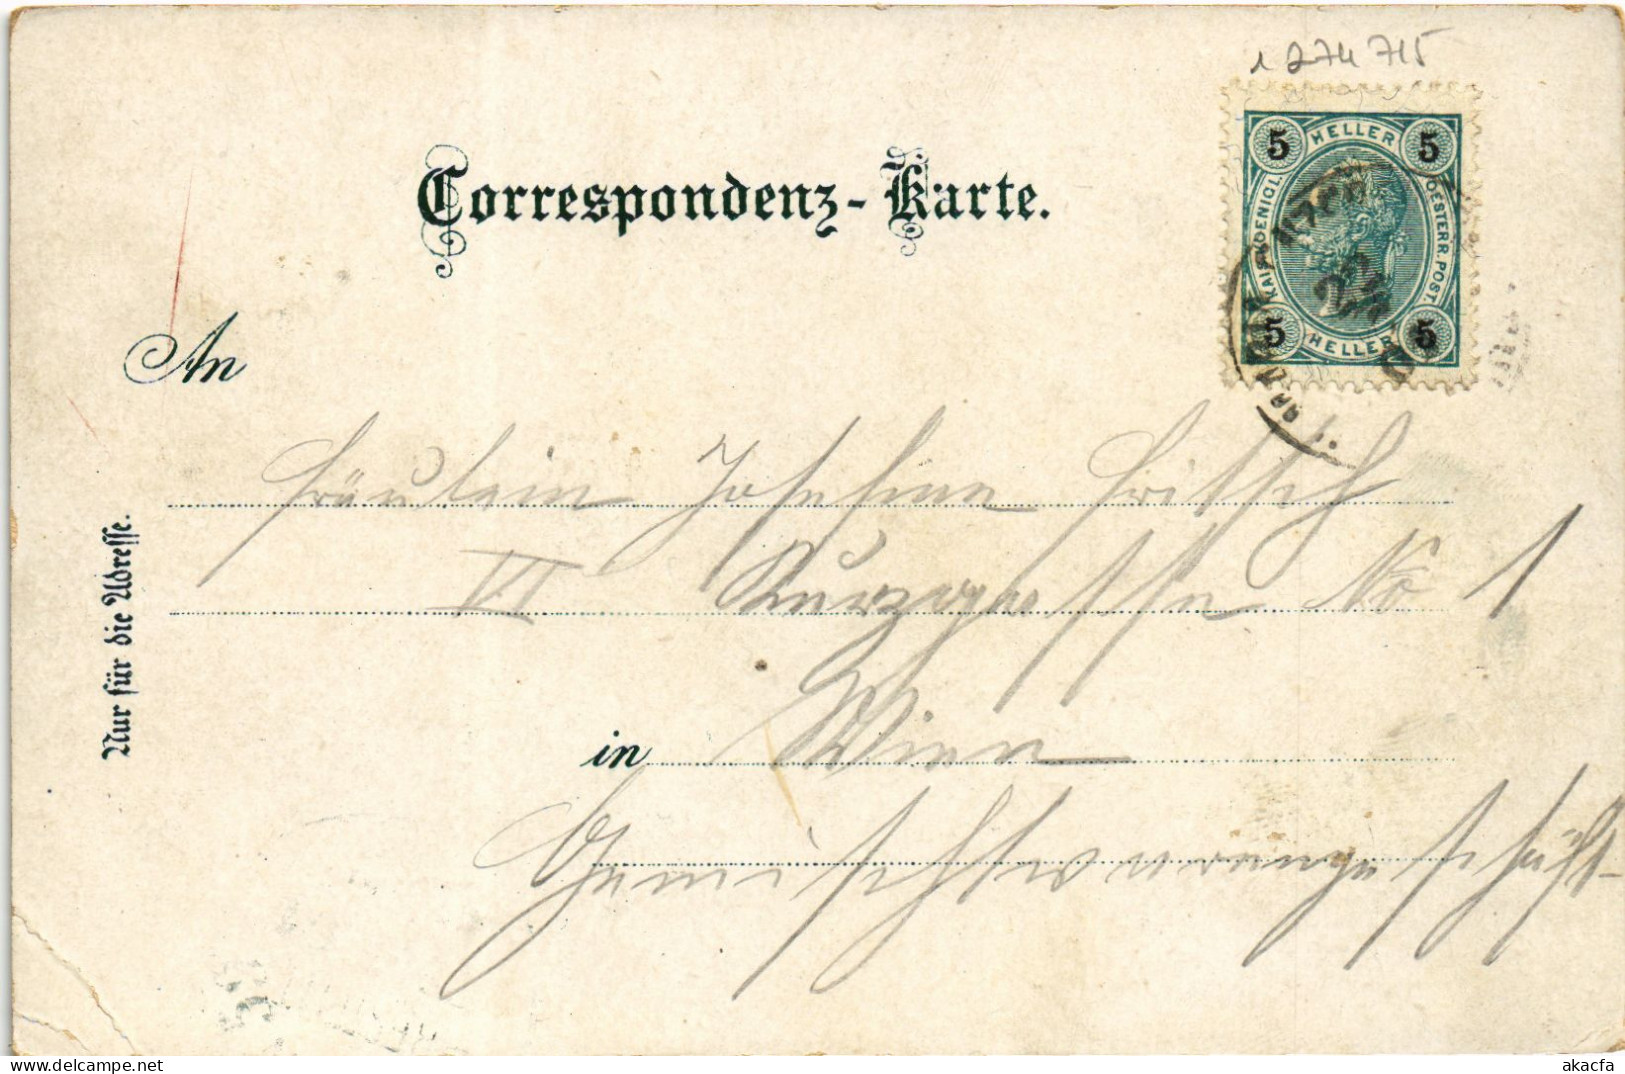 1274715
Correspondenz-Karte.
5 HELLER 5
KAIS. KOENIGL. OESTERR. POST.
5 HELLER 5
An
Fräulein Josefine Fritsch
VI Kurzgasse No 1
in Wien
Gemischtwarengeschäft
Nur für die Adresse.
akacfa